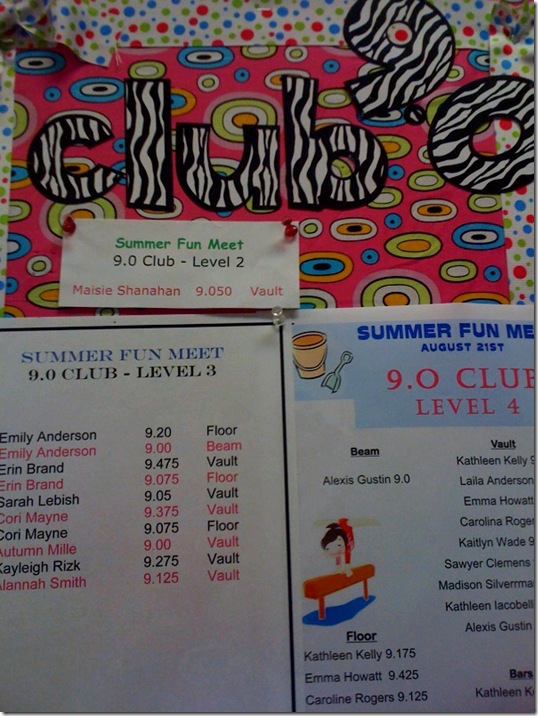 club 9.0
Summer Fun Meet
9.0 Club - Level 2
Maisie Shanahan 9.050 Vault
SUMMER FUN MEET
9.0 CLUB - LEVEL 3
Emily Anderson 9.20 Floor
Emily Anderson 9.00 Beam
Erin Brand 9.475 Vault
Erin Brand 9.075 Floor
Sarah Lebish 9.05 Vault
Cori Mayne 9.375 Vault
Cori Mayne 9.075 Floor
Autumn Mille 9.00 Vault
Kayleigh Rizk 9.275 Vault
Alannah Smith 9.125 Vault
SUMMER FUN ME
AUGUST 21ST
9.O CLUB
LEVEL 4
Beam
Alexis Gustin 9.0
Vault
Kathleen Kelly 9
Laila Anderson
Emma Howatt
Carolina Roger
Kaitlyn Wade 9
Sawyer Clemens
Madison Silverrma
Kathleen Iacobell
Alexis Gustin
Floor
Kathleen Kelly 9.175
Emma Howatt 9.425
Caroline Rogers 9.125
Bars
Kathleen K